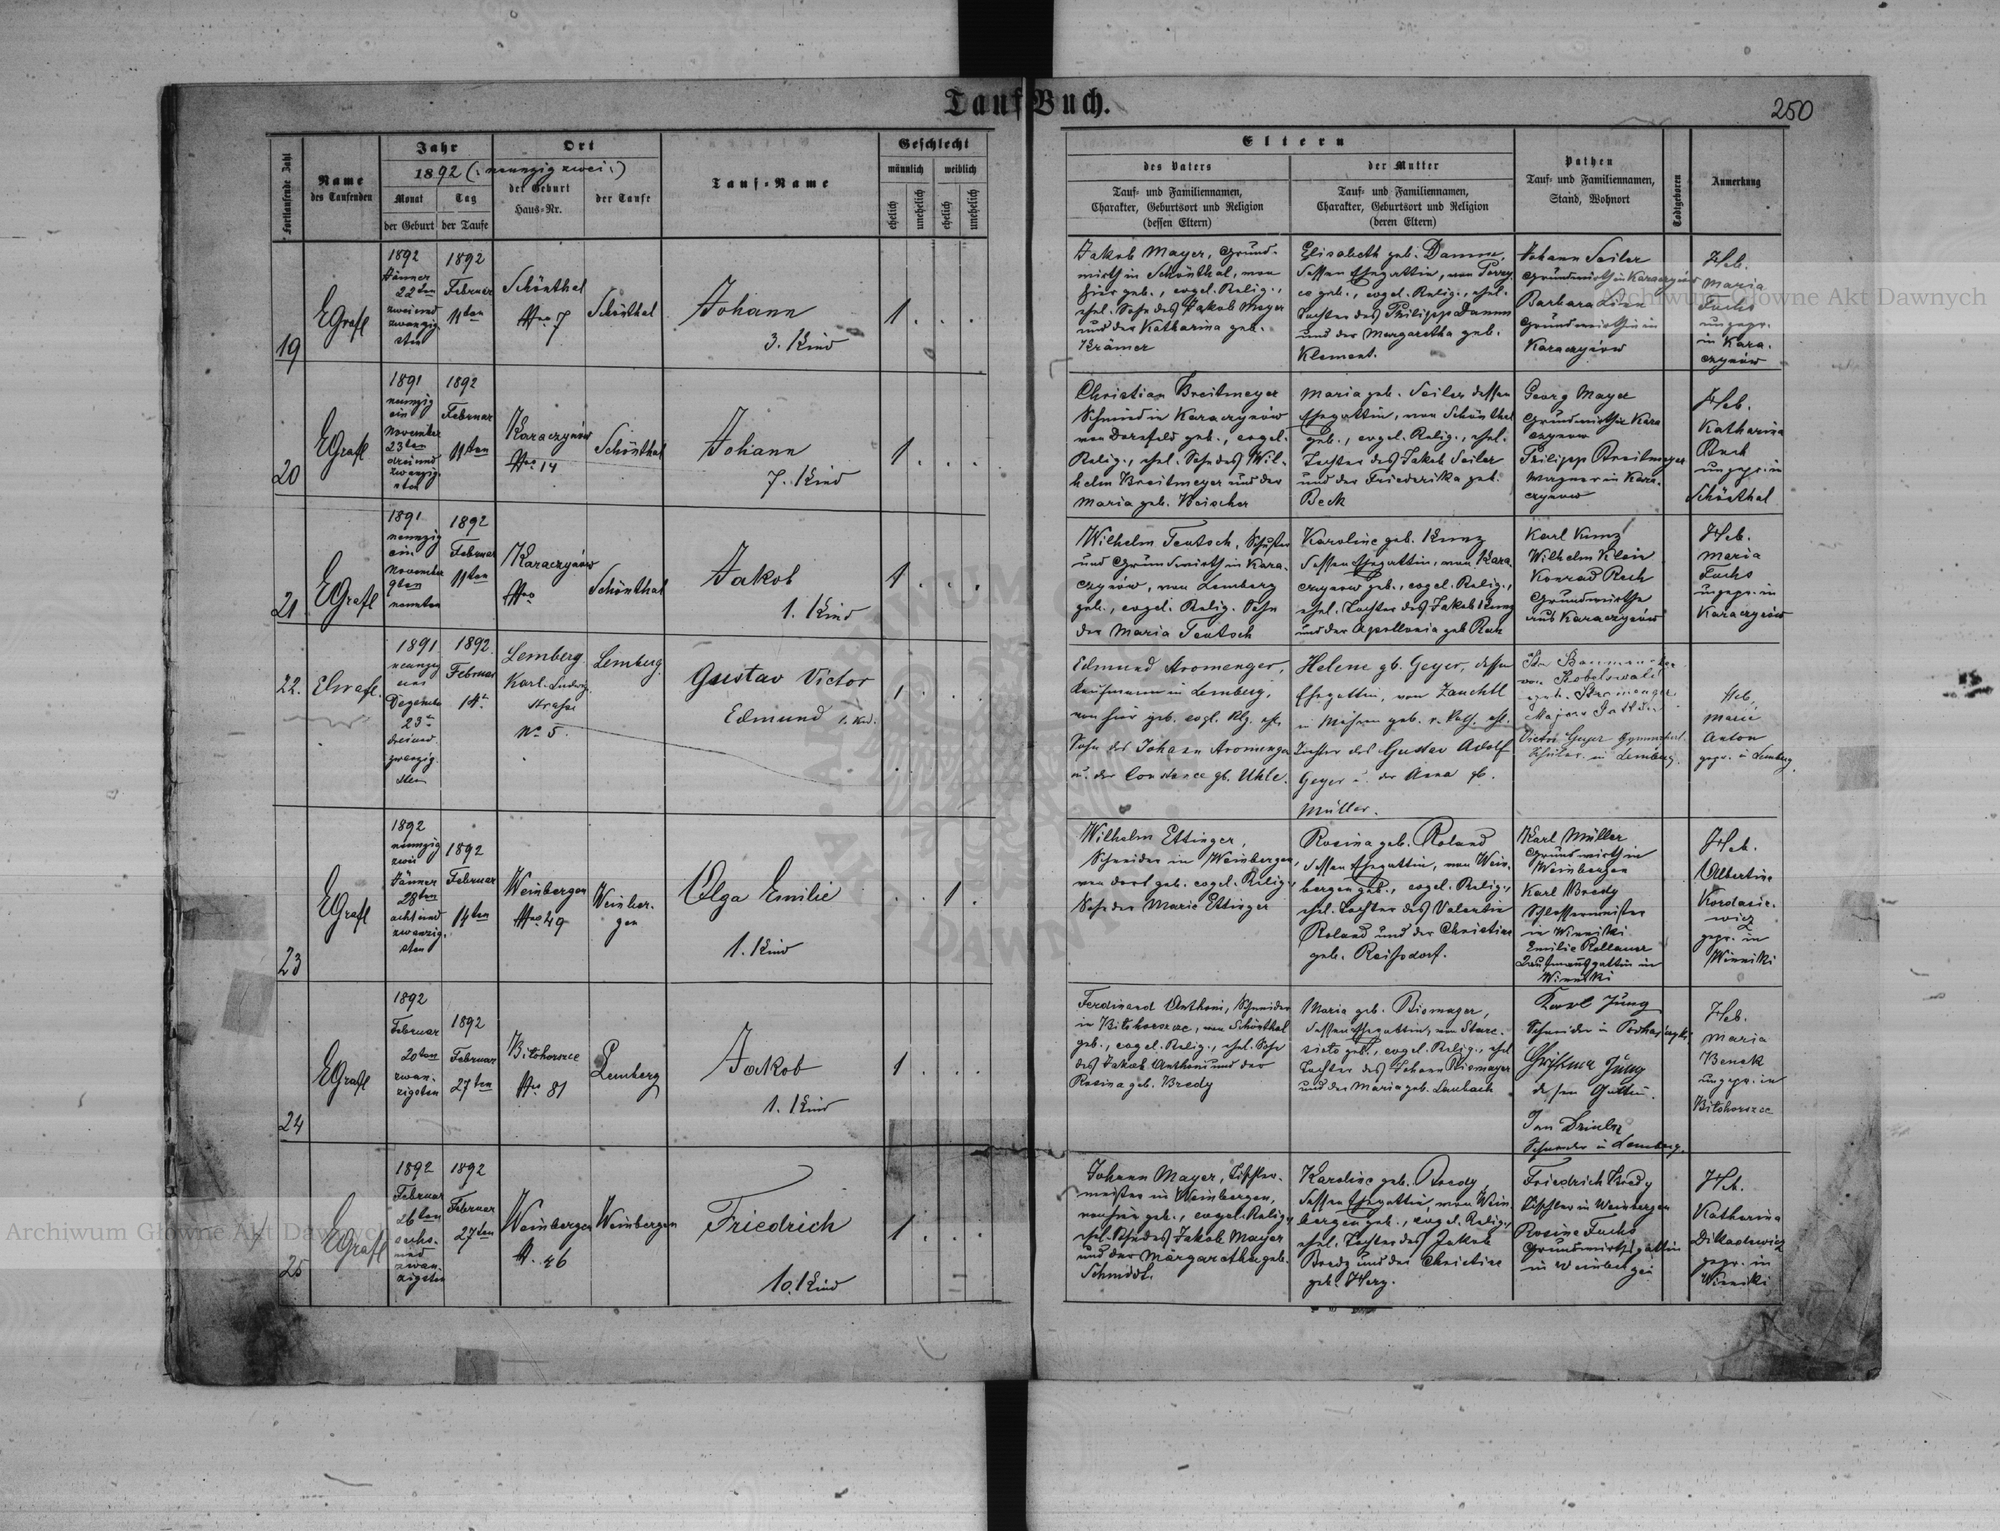 Tauf Buch.
250
Fortlaufende Zahl
Name
des Taufenden
Jahr
1892 (: neunzig zwei :)
Monat
der Geburt
Tag
der Taufe
Ort
der Geburt
Haus-Nr.
der Taufe
Tauf-Name
Geschlecht
männlich
weiblich
ehelich
unehelich
ehelich
unehelich
Eltern
des Vaters
Tauf- und Familiennamen,
Charakter, Geburtsort und Religion
(dessen Eltern)
der Mutter
Tauf- und Familiennamen,
Charakter, Geburtsort und Religion
(deren Eltern)
Pathen
Tauf- und Familiennamen,
Stand, Wohnort
Todtgeboren
Anmerkung
19
EGrafl
1892
Jänner
22ten
zwei und
zwanzig
sten
1892
Februar
11ten
Schönthal
Nro 7
Schönthal
Johann
3. Kind
1 . . .
Jakob Mayer, Grund-
wirth in Schönthal, von
hier geb., evgel. Relig.,
ehel. Sohn des Jakob Mayer
und der Katharina geb.
Krämer
Elisabeth geb. Damm,
dessen Ehegattin, von
geb., evgel. Relig., ehel.
Tochter des Philipp Damm
und der Margaretha geb.
Klement.
Johann Seiler
Grundwirth in Karaczynów
Barbara
Grundwirthin in
Karaczynów
Heb.
Maria
Fuchs
ungepr.
in Kara-
czynów
20
EGrafl
1891
neunzig
ein
November
23ten
drei und
zwanzig-
sten
1892
Februar
11ten
Karaczynów
Nro 14
Schönthal
Johann
7. Kind
1 . . .
Christian Breitmeyer
Schmied in Karaczynów
von Dornfeld geb., evgel.
Relig., ehel. Sohn des Wil-
helm Breitmeyer und der
Maria geb.
Maria geb. Seiler dessen
Ehegattin, von Schönthal
geb., evgel. Relig., ehel.
Tochter des Jakob Seiler
und der Friederika geb.
Beck
Georg Mayer
Grundwirth in Kara
czynów
Philipp Breitmeyer
Wagner in Kara-
czynów
Heb.
Katharina
ungepr. in
Schönthal
21
EGrafl
1891
neunzig
ein
November
9ten
neunten
1892
Februar
11ten
Karaczynów
Nro
Schönthal
Jakob
1. Kind
1 . . .
Wilhelm Teutsch, Schuster
und Grundwirth in Kara-
czynów, von Lemberg
geb., evgel. Relig. Sohn
der Maria Teutsch
Karoline geb. Kunz
dessen Ehegattin, von Kara
czynow geb., evgel. Relig.,
ehel. Tochter des Jakob Kunz
und der Apollonia geb
Karl Kunz
Wilhelm Klein
Konrad Rech
Grundwirthe
aus Karaczynów
Heb.
Maria
Fuchs
ungepr. in
Karaczynów
22.
EGrafl.
1891
neunzig
eins
Dezember
23n
drei und
zwanzig
sten
1892.
Februar
14n
Lemberg.
Karl-Ludwig
strasse
No 5.
Lemberg.
Gustav Victor
Edmund 1. Kind.
1 . . .
Edmund Stromenger,
Kaufmann in Lemberg,
von hier geb. evgl. Rlg. ehl.
Sohn des Johann Stromenger
u. der Constance gb. Uhle.
Helene gb. Geyer, dessen
Ehegattin, von Zauchtl
in Mähren geb. r. kath. ehl.
Tochter des Gustav Adolf
Geyer u. der Anna gb.
Müller.
Victor Geyer Gymnasial-
Schüler in Lemberg.
Heb,
Marie
Anton
gepr. in Lemberg.
23
EGrafl
1892
neunzig
zwei
Jänner
28ten
acht und
zwanzig-
sten
1892
Februar
14ten
Weinbergen
Nro 49
Weinber-
gen
Olga Emilie
1. Kind
. . 1 .
Wilhelm Ettinger,
Schneider in Weinbergen,
von dort geb. evgel. Relig.,
Sohn der Marie Ettinger
Rosina geb. Roland
dessen Ehegattin, von Wein-
bergen geb., evgel. Relig.,
ehel. Tochter des Valentin
Roland und der Christine
geb. Reichsdorf.
Karl Müller
Grundwirth in
Weinbergen
Karl Bredy
Schlossermeister
in Winniki
Emilie
Kaufmannsgattin in
Winniki
Heb.
Albertine
Kordasie-
wicz
gepr. in
Winniki
24
EGrafl
1892
Februar
20ten
zwan-
zigsten
1892
Februar
27ten
Bilohorszcze
Nro 81
Lemberg
Jakob
1. Kind
1 . . .
Ferdinand Anthoni, Schneider
in Bilohorszcze, von Schönthal
geb., evgel. Relig., ehel. Sohn
des Jakob Anthoni und der
Rosina geb. Bredy
Maria geb. Biemayer,
dessen Ehegattin, von Stare-
siolo geb., evgel. Relig., ehel
Tochter des Johann Biemayer
und der Maria geb. Laubach
Karl Jung
Schneider in
Christina Jung
dessen Gattin.
Jan
Schneider in Lemberg.
Heb.
Maria
Benek
ungepr. in
Bilohorszcze
25
EGrafl
1892
Februar
26ten
sechs-
und
zwan-
zigsten
1892
Februar
27ten
Weinbergen
N. 46
Weinbergen
Friedrich
10. Kind
1 . . .
Johann Mayer, Tischler-
meister in Weinbergen,
von hier geb., evgel. Relig.,
ehel. Sohn des Jakob Mayer
und der Margaretha geb.
Schmidt.
Karoline geb. Bredy,
dessen Ehegattin, von Wein
bergen geb., evgel. Relig.,
ehel. Tochter des Jakob
Bredy und der Christine
geb. Herz.
Friedrich Bredy
Tischler in Weinbergen
Rosine Fuchs
Grundwirthsgattin
in Weinbergen
Heb.
Katharina
gepr. in
Winniki
Archiwum Główne Akt Dawnych
Archiwum Główne Akt Dawnych